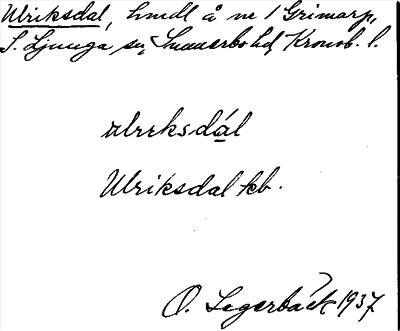 Ulriksdal, hmdl å nr 1 Grimarp,
S. Ljunga sn, Sunnerbo hd, Kronob. l.
ulrɩksdál
Ulriksdal kb.
O. Segerbäck 1937